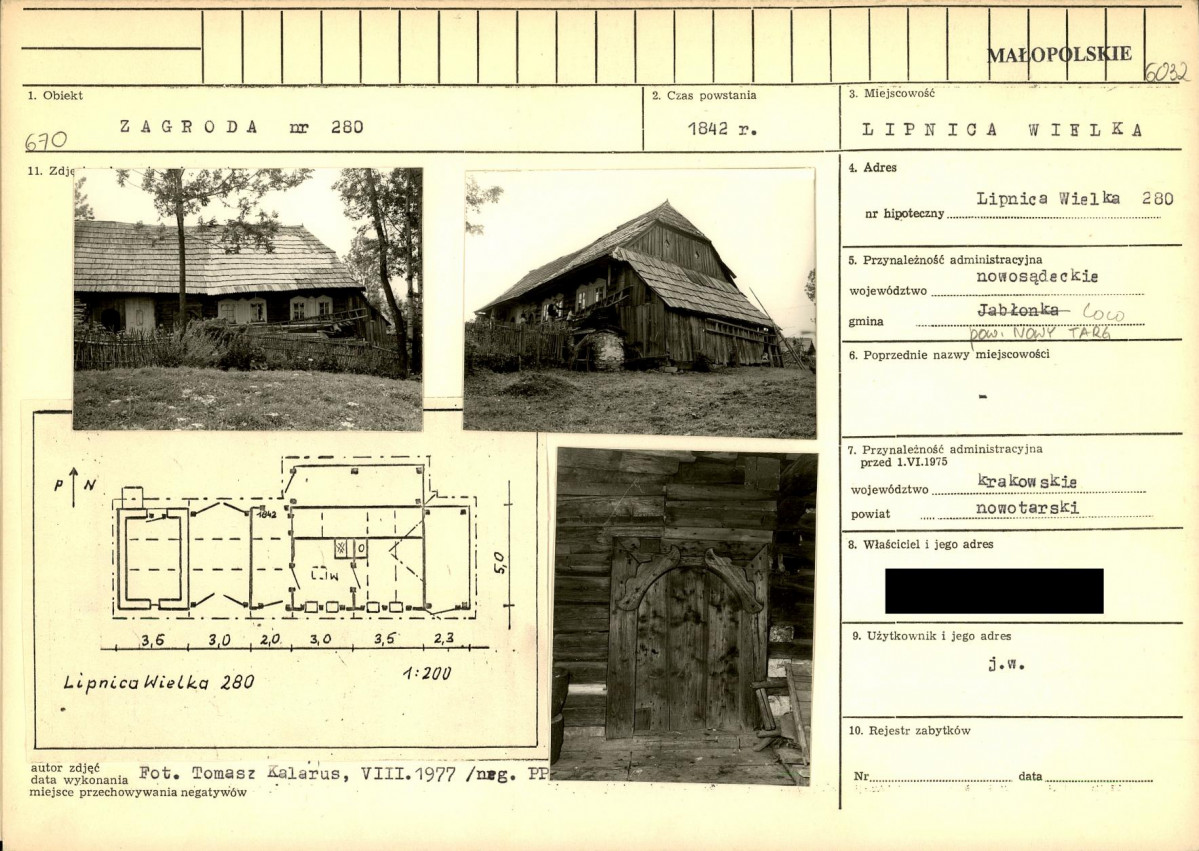 MAŁOPOLSKIE
6032
1. Obiekt
ZAGRODA nr 280
670
2. Czas powstania
1842 r.
3. Miejscowość
LIPNICA WIELKA
11. Zdję
4. Adres
Lipnica Wielka 280
nr hipoteczny
5. Przynależność administracyjna
nowosądeckie
województwo
Jabłonka LOCO
gmina
pow. NOWY TARG
6. Poprzednie nazwy miejscowości
-
7. Przynależność administracyjna
przed 1.VI.1975
województwo krakowskie
powiat nowotarski
8. Właściciel i jego adres
9. Użytkownik i jego adres
j.w.
10. Rejestr zabytków
Nr data
P N
1842
5,0
3,6 3,0 2,0 3,0 3,5 2,3
Lipnica Wielka 280
1:200
autor zdjęć
data wykonania
miejsce przechowywania negatywów
Fot. Tomasz Kalarus, VIII.1977 /neg. PP